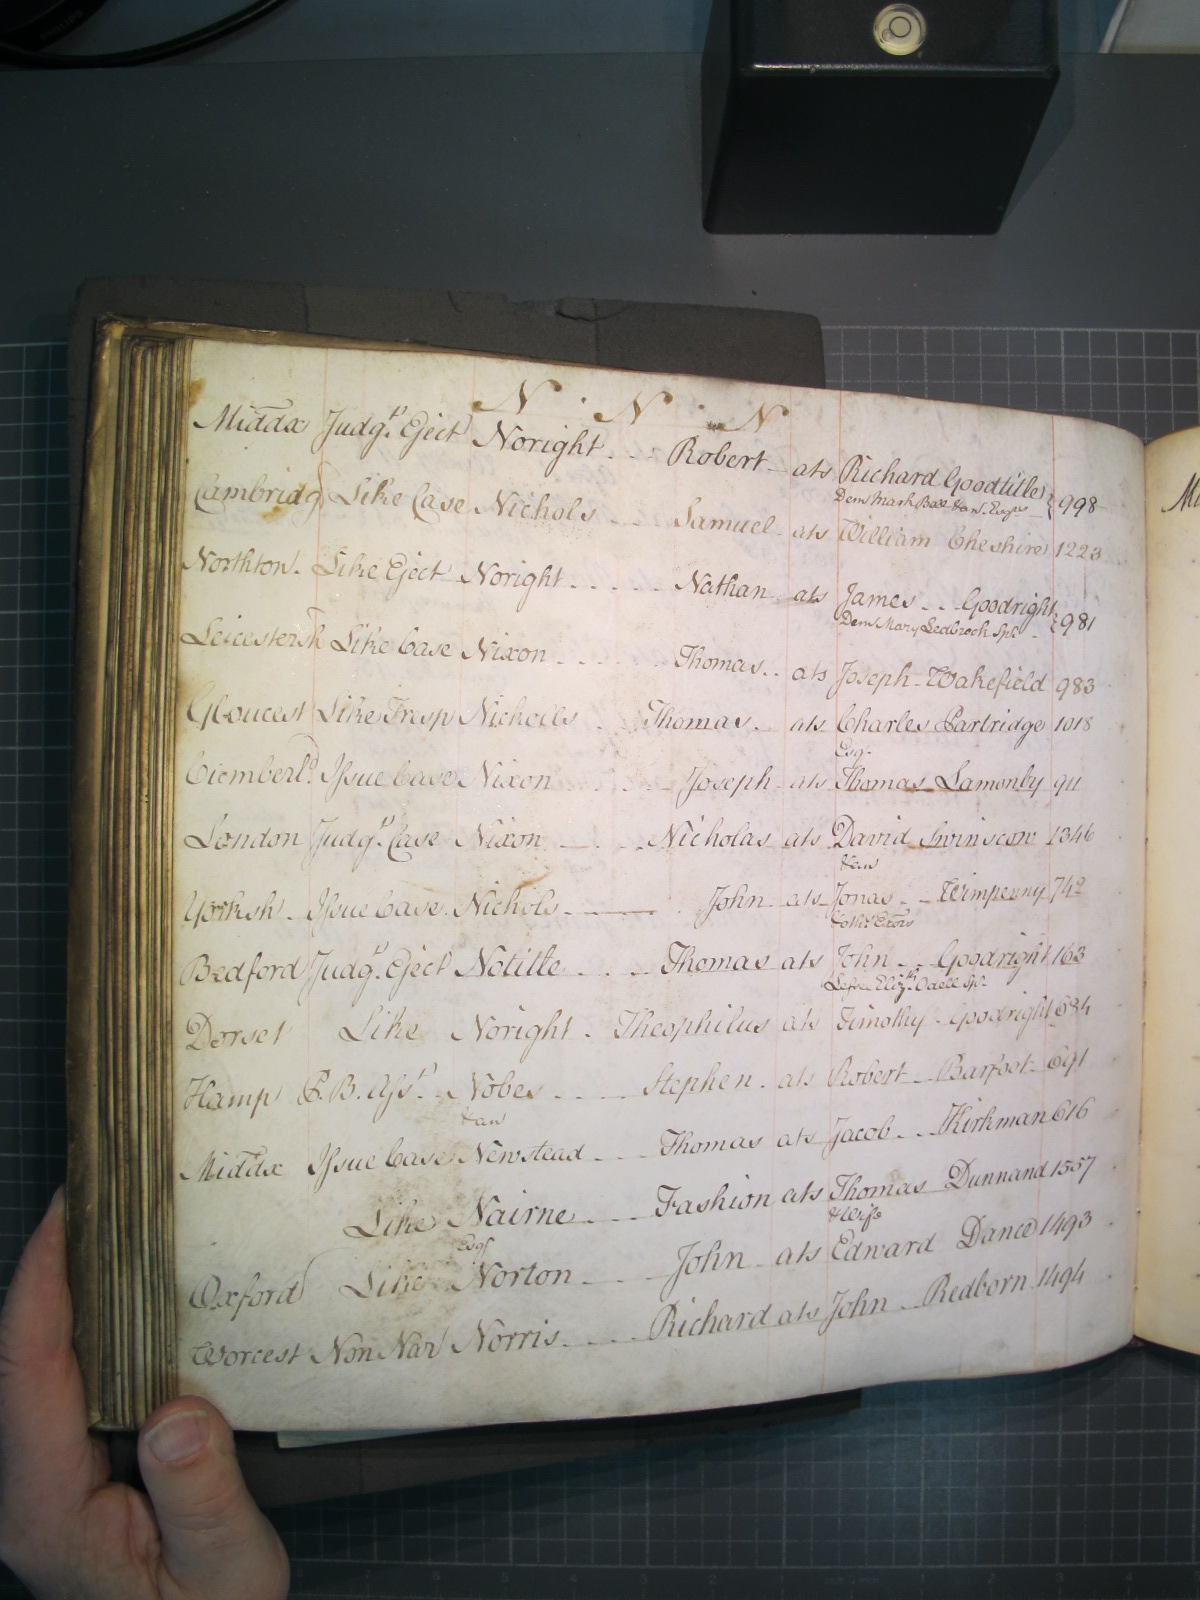 N . N . N
Middx Judgt. Eject Noright Robert ats Richard Goodtitle } 998
Dem Mark Ball & an. Esqrs
Cambridg Like Case Nichols Samuel ats William Cheshire 1223
Northton. Like Eject Noright Nathan ats James Goodright } 981
Dem Mary Ledbroch Spr
Leicestersh Like Case Nixon Thomas ats Joseph Wakefield 983
Gloucest Like Tresp Nicholls Thomas ats Charles Partridge 1018
Esqr.
Cumberld. Issue Case Nixon Joseph ats Thomas Lamonby 911
London Judgt. Case Nixon Nicholas ats David Swinscow 1346
& an
Yorksh. Issue Case Nichols John ats Jonas Wimpenny 742
& othr. Exors
Bedford Judgt. Eject Notitle Thomas ats John Goodright 163
Lefsee Elizth. Odell Spr.
Dorset Like Noright Theophilus ats Timothy Goodright 684
Hamp P. B. Afst. Nobes Stephen ats Robert Barfoot 691
& an
Middx Issue Case Newstead Thomas ats Jacob Kirkman 616
Like Nairne Fashion ats Thomas Dunnand 1557
Esqr & Wife
Oxford Like Norton John ats Edward Dance 1493
Worcest Non Nar Norris Richard ats John Redborn 1494